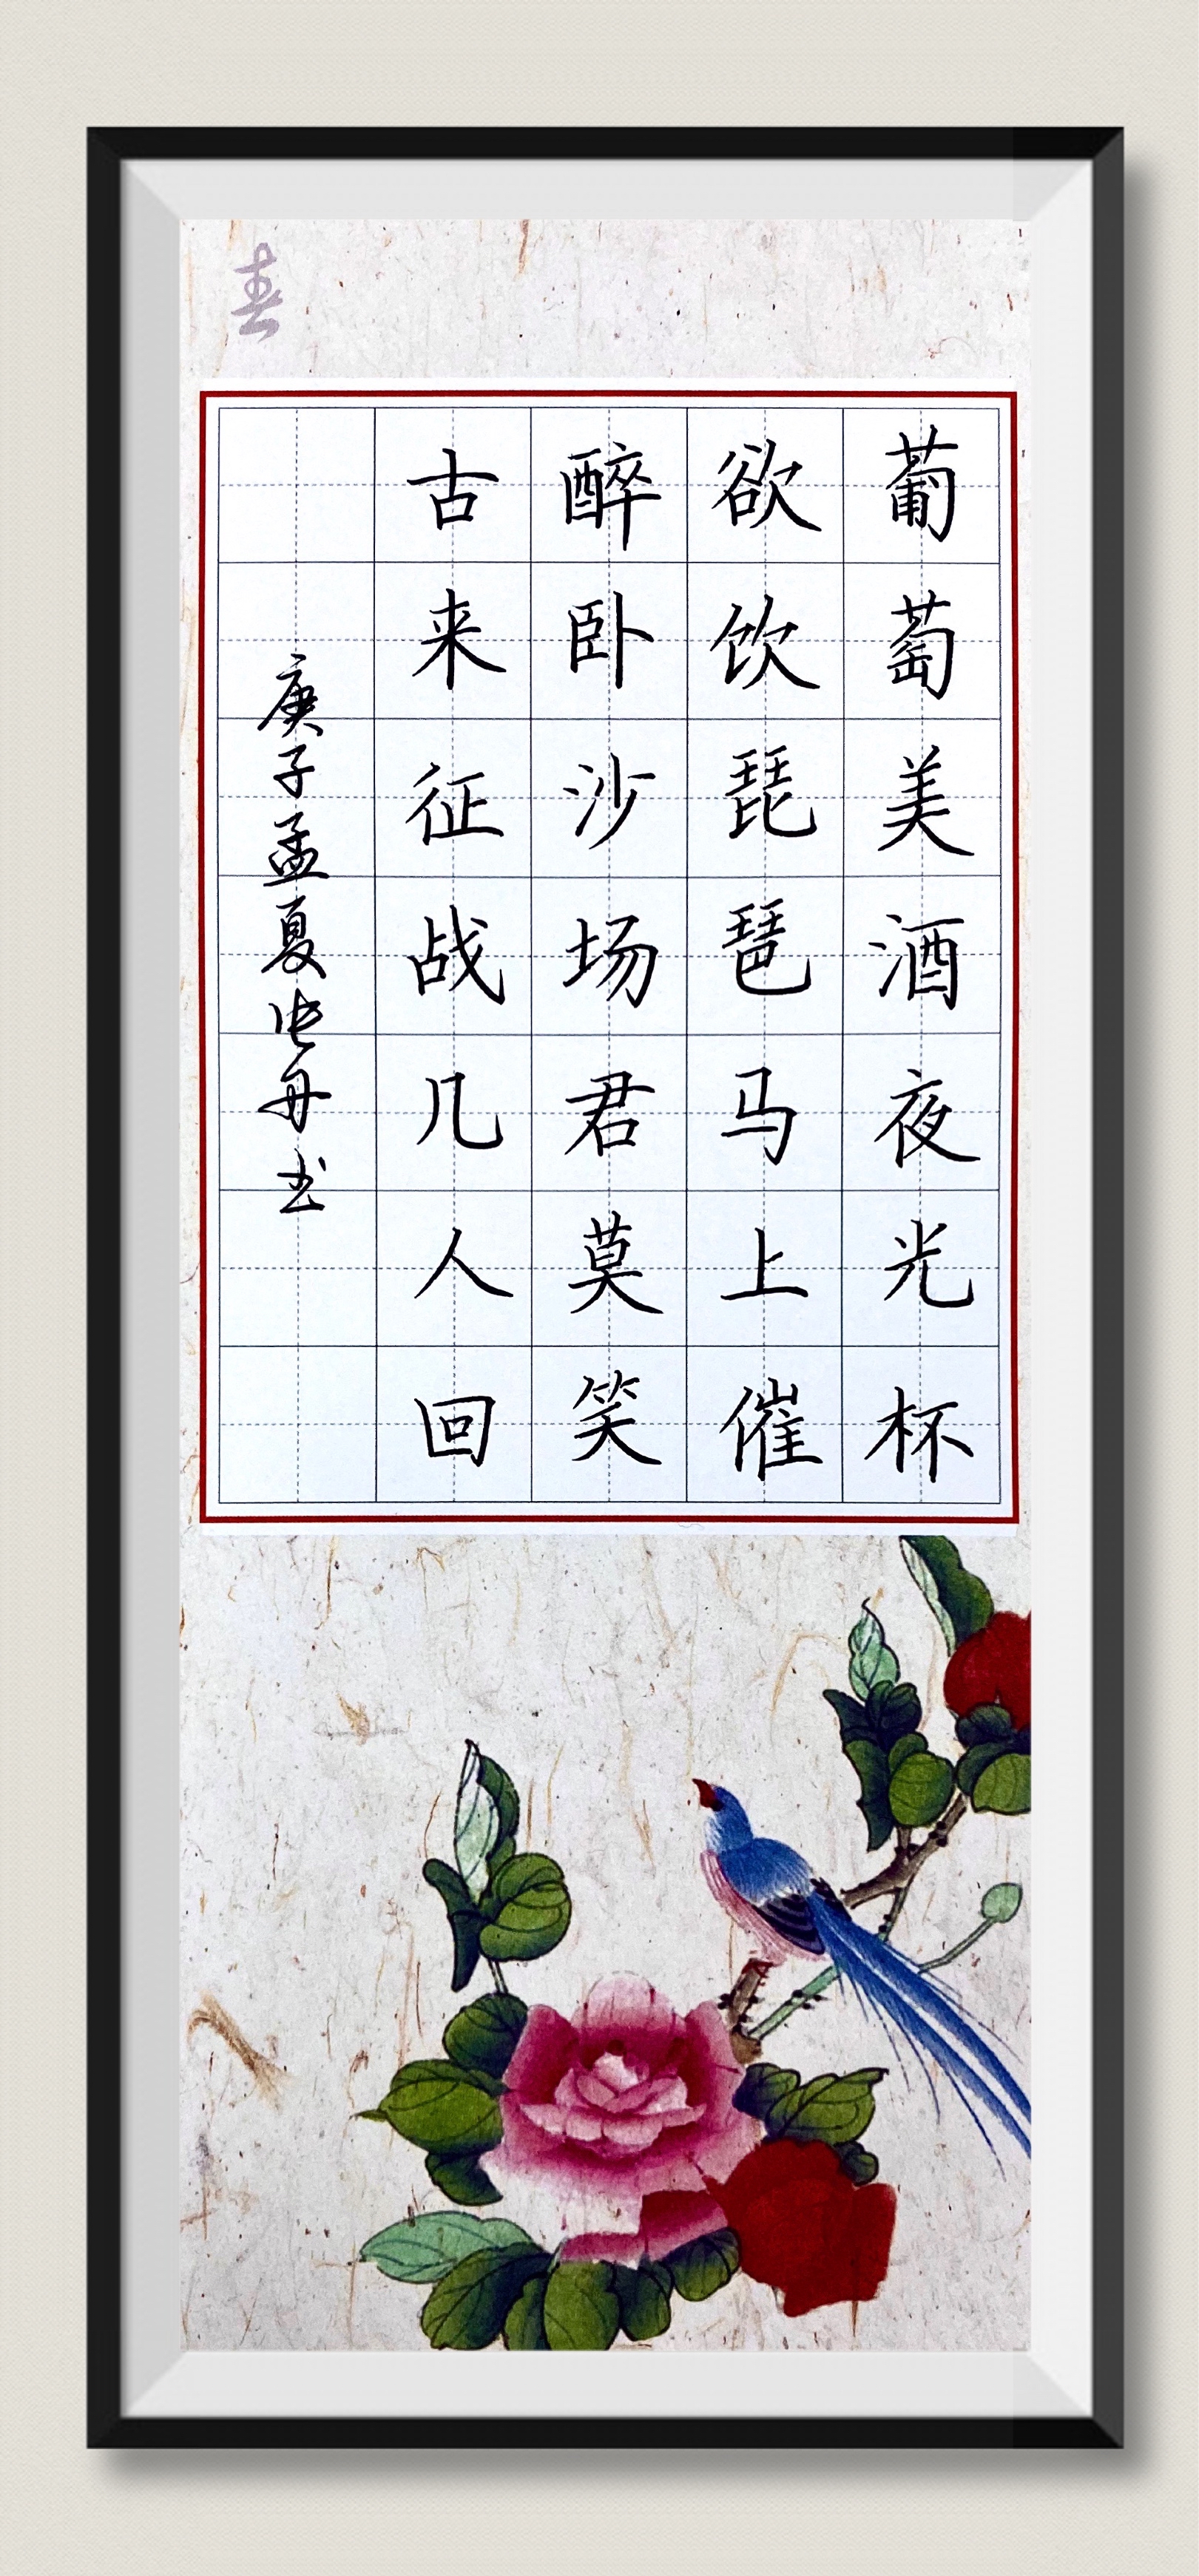 春
葡萄美酒夜光杯
欲饮琵琶马上催
醉卧沙场君莫笑
古来征战几人回
庚子孟夏 丹书